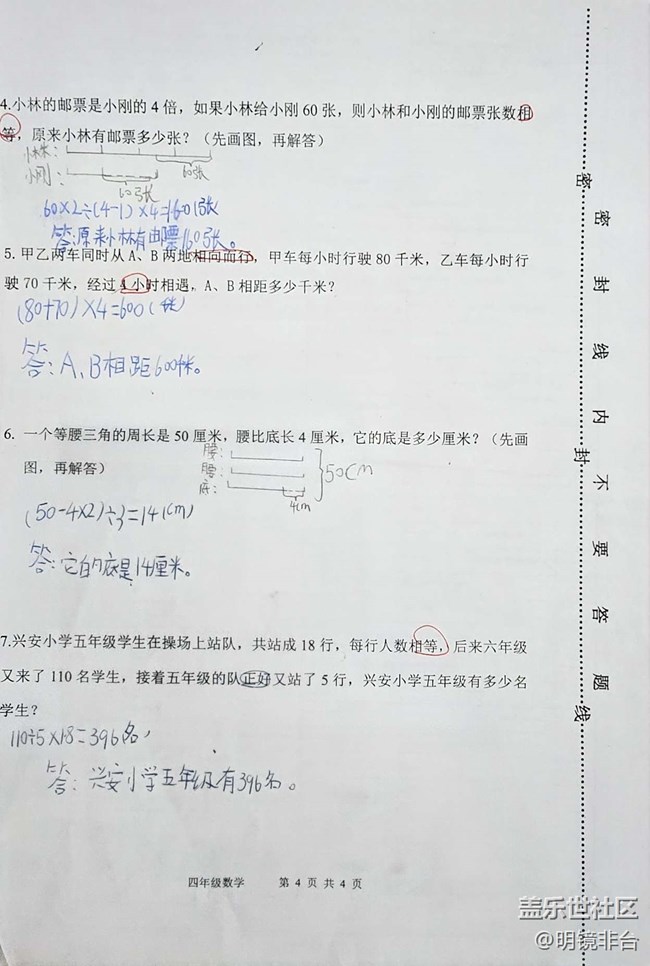 4.小林的邮票是小刚的 4 倍，如果小林给小刚 60 张，则小林和小刚的邮票张数相
等，原来小林有邮票多少张？（先画图，再解答）
小林：
60张
小刚：
60张
60×2÷(4-1)×4=160(张
答:原来小林有邮票160张。
5. 甲乙两车同时从 A、B 两地相向而行，甲车每小时行驶 80 千米，乙车每小时行
驶 70 千米，经过 4 小时相遇，A、B 相距多少千米？
(80+70)×4=600(千米)
答:A、B相距600千米。
6. 一个等腰三角的周长是 50 厘米，腰比底长 4 厘米，它的底是多少厘米？（先画
图，再解答）
腰:
腰:
50cm
底:
4cm
(50-4×2)÷3=14(cm)
答:它的底是14厘米。
7.兴安小学五年级学生在操场上站队，共站成 18 行，每行人数相等，后来六年级
又来了 110 名学生，接着五年级的队正好又站了 5 行，兴安小学五年级有多少名
学生？
110÷5×18=396名
答:兴安小学五年级有396名。
四年级数学 第 4 页 共 4 页
密 封 线 内 不 要 答 题
密 封 线
盖乐世社区
@明镜非台